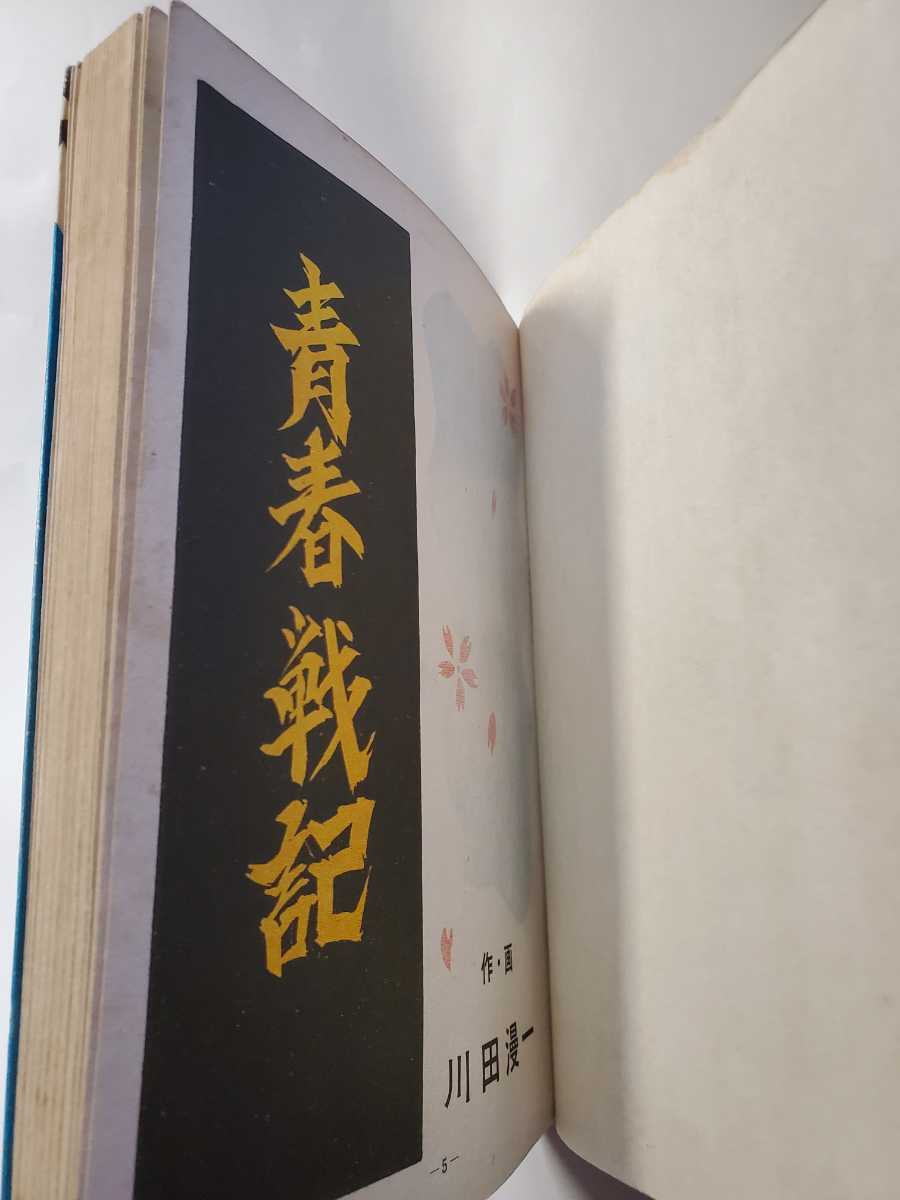 青春戦記
作・画
川田漫一
—5—